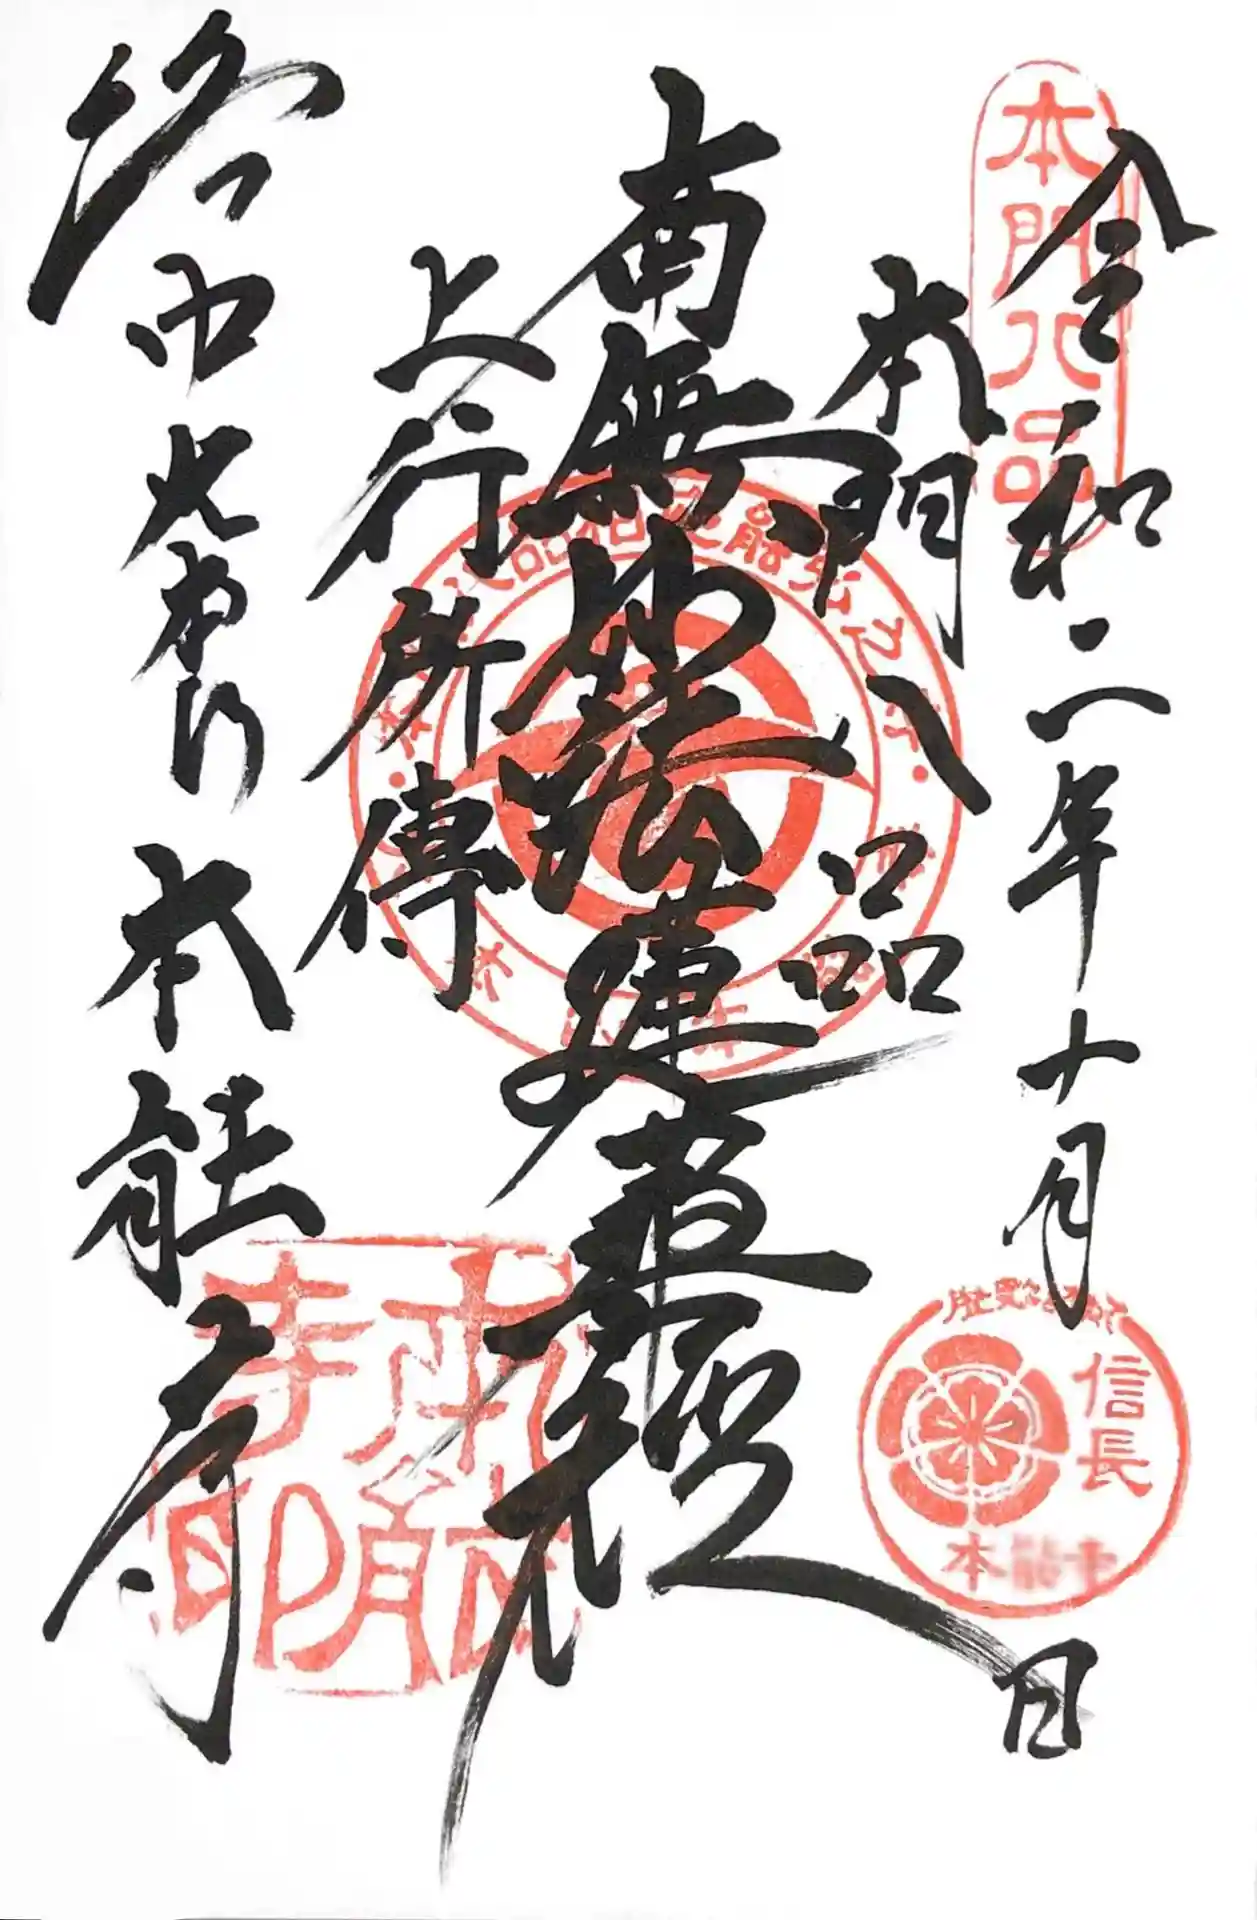 令和二年十月日
本門八品
南無妙法蓮華経
上行所傳
洛中大本山
本能寺
本門八品
信長
本能寺
本能寺印